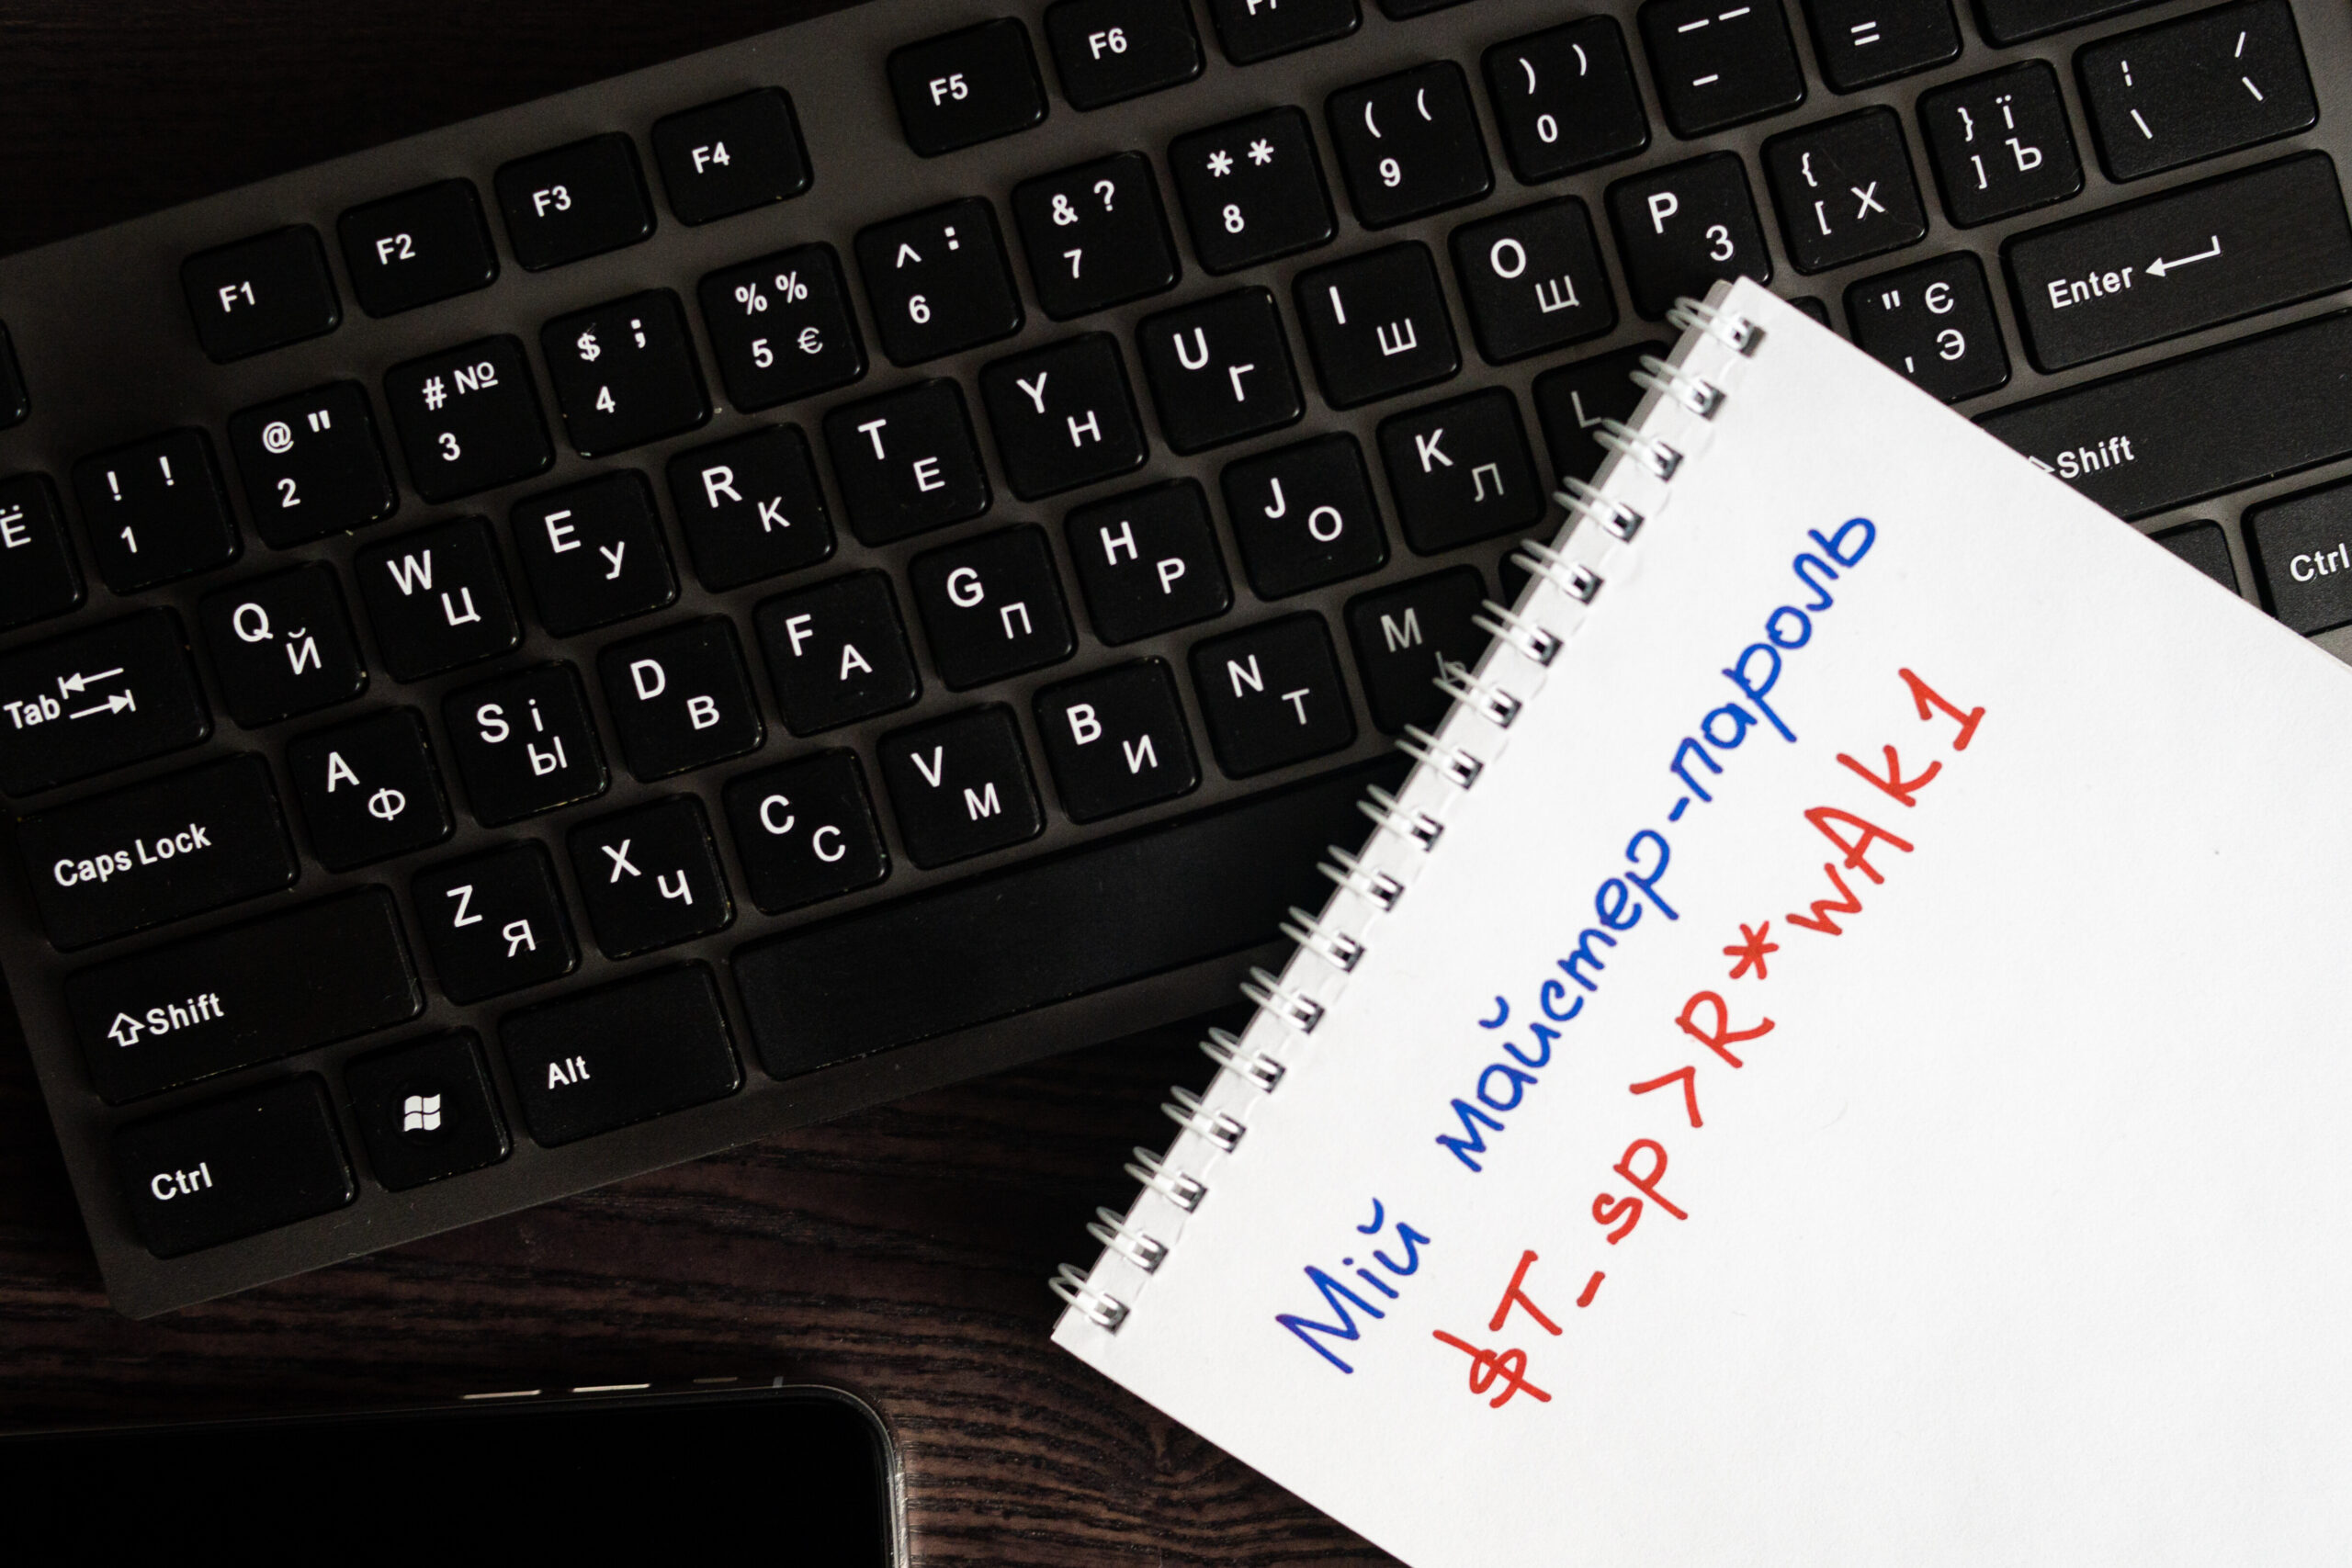 F1 F2 F3 F4 F5 F6
Ё ! ! 1 @ " 2 # № 3 $ ; 4 % % 5 € ^ : 6 & ? 7 * * 8 ( ( 9 ) ) 0 — — - =
Tab Q Й W Ц E У R К T Е Y Н U Г I Ш O Щ P З { [ Х } ї ] Ъ ¦ \ / \
Caps Lock A Ф S і Ы D В F А G П H Р J О K Л L " Є ' Э Enter
Shift Z Я X Ч C С V М B И N Т M Ь Shift
Ctrl Alt Ctrl
Мій майстер-пароль
$T_sp>R*wAk1